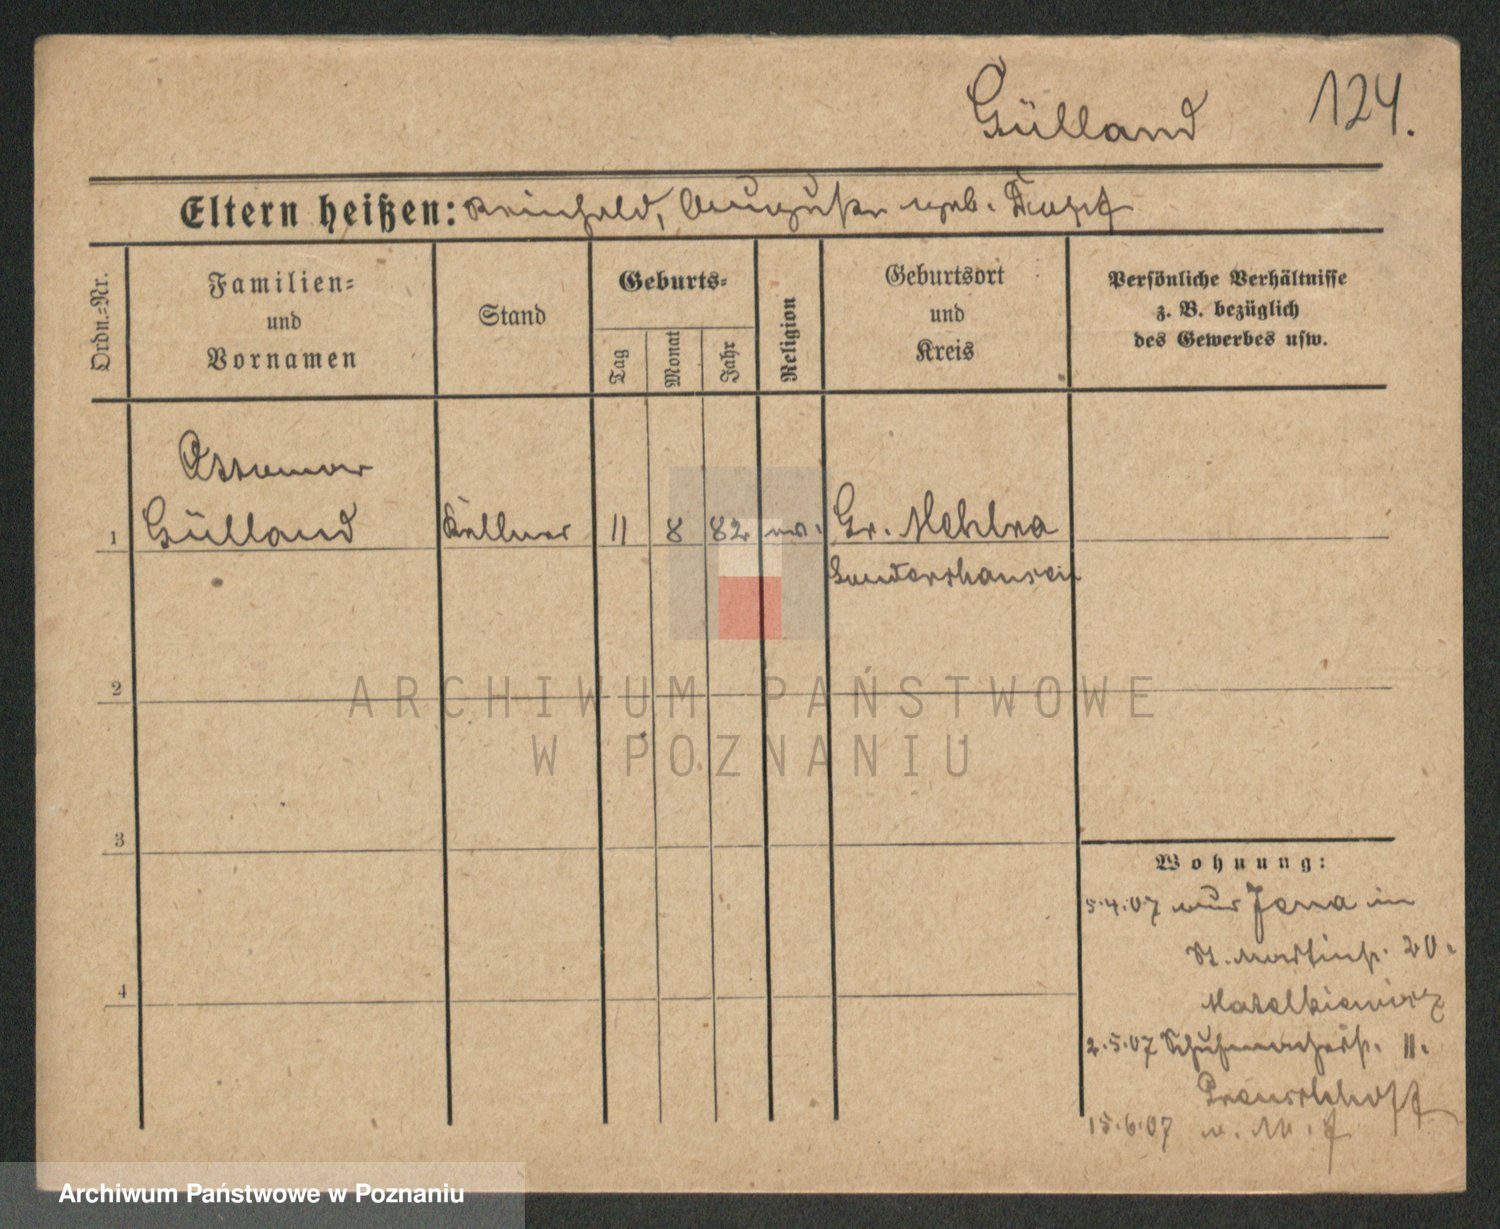 Gülland 124.
Eltern heißen: Reinhold, Auguste geb. Topf
Ordn.=Nr.
Familien=
und
Vornamen
Stand
Geburts=
Tag
Monat
Jahr
Religion
Geburtsort
und
Kreis
Persönliche Verhältnisse
z. B. bezüglich
des Gewerbes usw.
Ottomar
1 Gülland Kellner 11 8 82 ev. Gr. Mehlra
Sondershausen
2
3
4
Wohnung:
5.4.07 aus Jena in
St. Martinstr. 20.
2.5.07 Schuhmacherstr. 11.
15.6.07 n.
ARCHIWUM PAŃSTWOWE
W POZNANIU
Archiwum Państwowe w Poznaniu